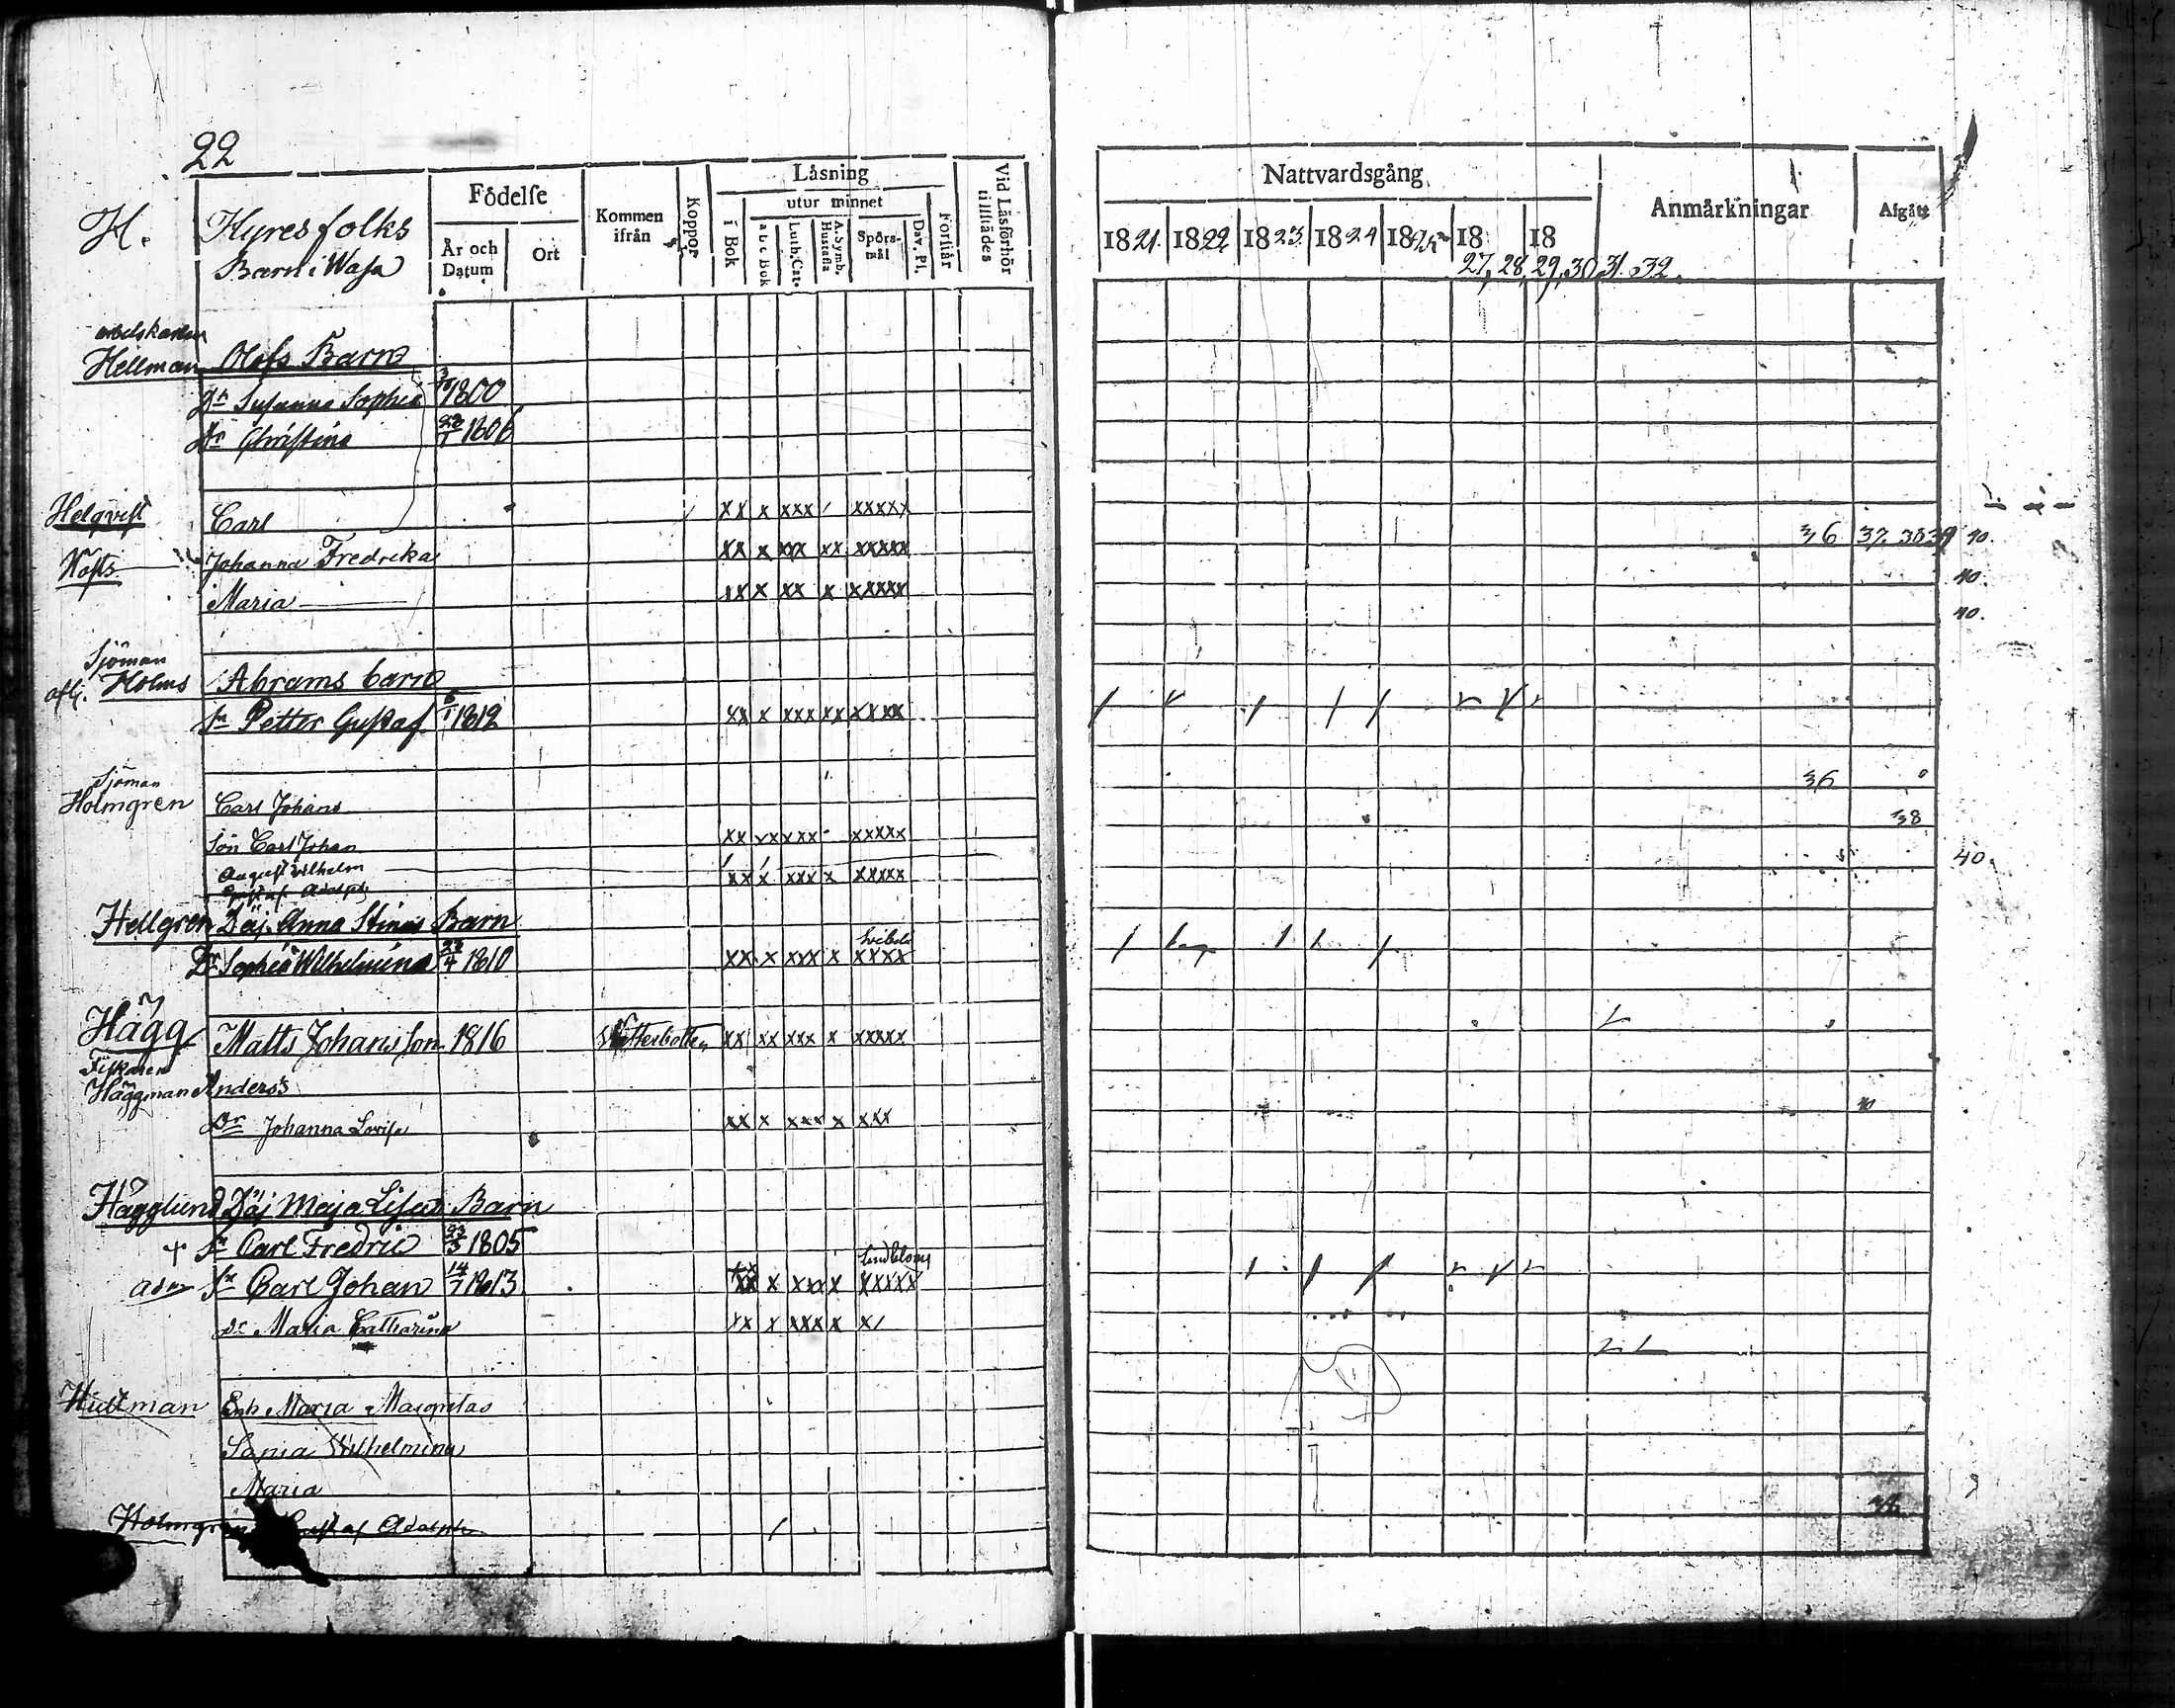 22
H. Hyresfolks
Barn i Wasa
Födelse
År och Datum
Ort
Kommen ifrån
Koppor
Läsning
i Bok
utur minnet
abc Bok
Luth. Cat.
A. Symb. Hustafla
Spörsmål
Dav. Ps.
Förstår
Vid Läsförhör tillstädes
Nattvardsgång
1821. 1822 1823 1824 1825 18 18
27, 28, 29, 30 31. 32.
Anmärkningar
Afgått
Hellman Olofs Barn
Dr Susanna Sophia 3/10 1800
Dr Christina 1806
Helqvist Carl xx x xxx xxxxx
36 37. 38 39 40.
Johanna Fredrika xx x xxx xx xxxxx
40.
Maria xx x xx x xxxxx
40.
Sjöman
Holms Abrams barn
Sn Petter Gustaf 1812 xx x xxx xx xxxx
Sjöman
Holmgren Carl Johans
36
Son Carl Johan xx xx xxx xxxxx
38
August Wilhelm
Gustaf Adolph xx x xxx x xxxxx
40.
Hellgren Däj. Anna Stinas Barn
Dr Sophia Wilhelmina 23/4 1810 xx x xxx x xxxx
Hägg Matts Johansson 1816 xx xx xxx x xxxxx
Fiskaren
Häggman Anders's
Dr Johanna Lovisa xx x xxx x xxx
Hägglund Däj Maja Lisas Barn
+ Sn Carl Fredric 23/3 1805
Lindblom
Sn Carl Johan 14/7 1813 xx x xxx x xxxxx
Dr Maria Catharina xx x xxx x x
Hultman Enk. Maria Margretas
Wilhelmina
Maria
Holmgren Gustaf Adolph